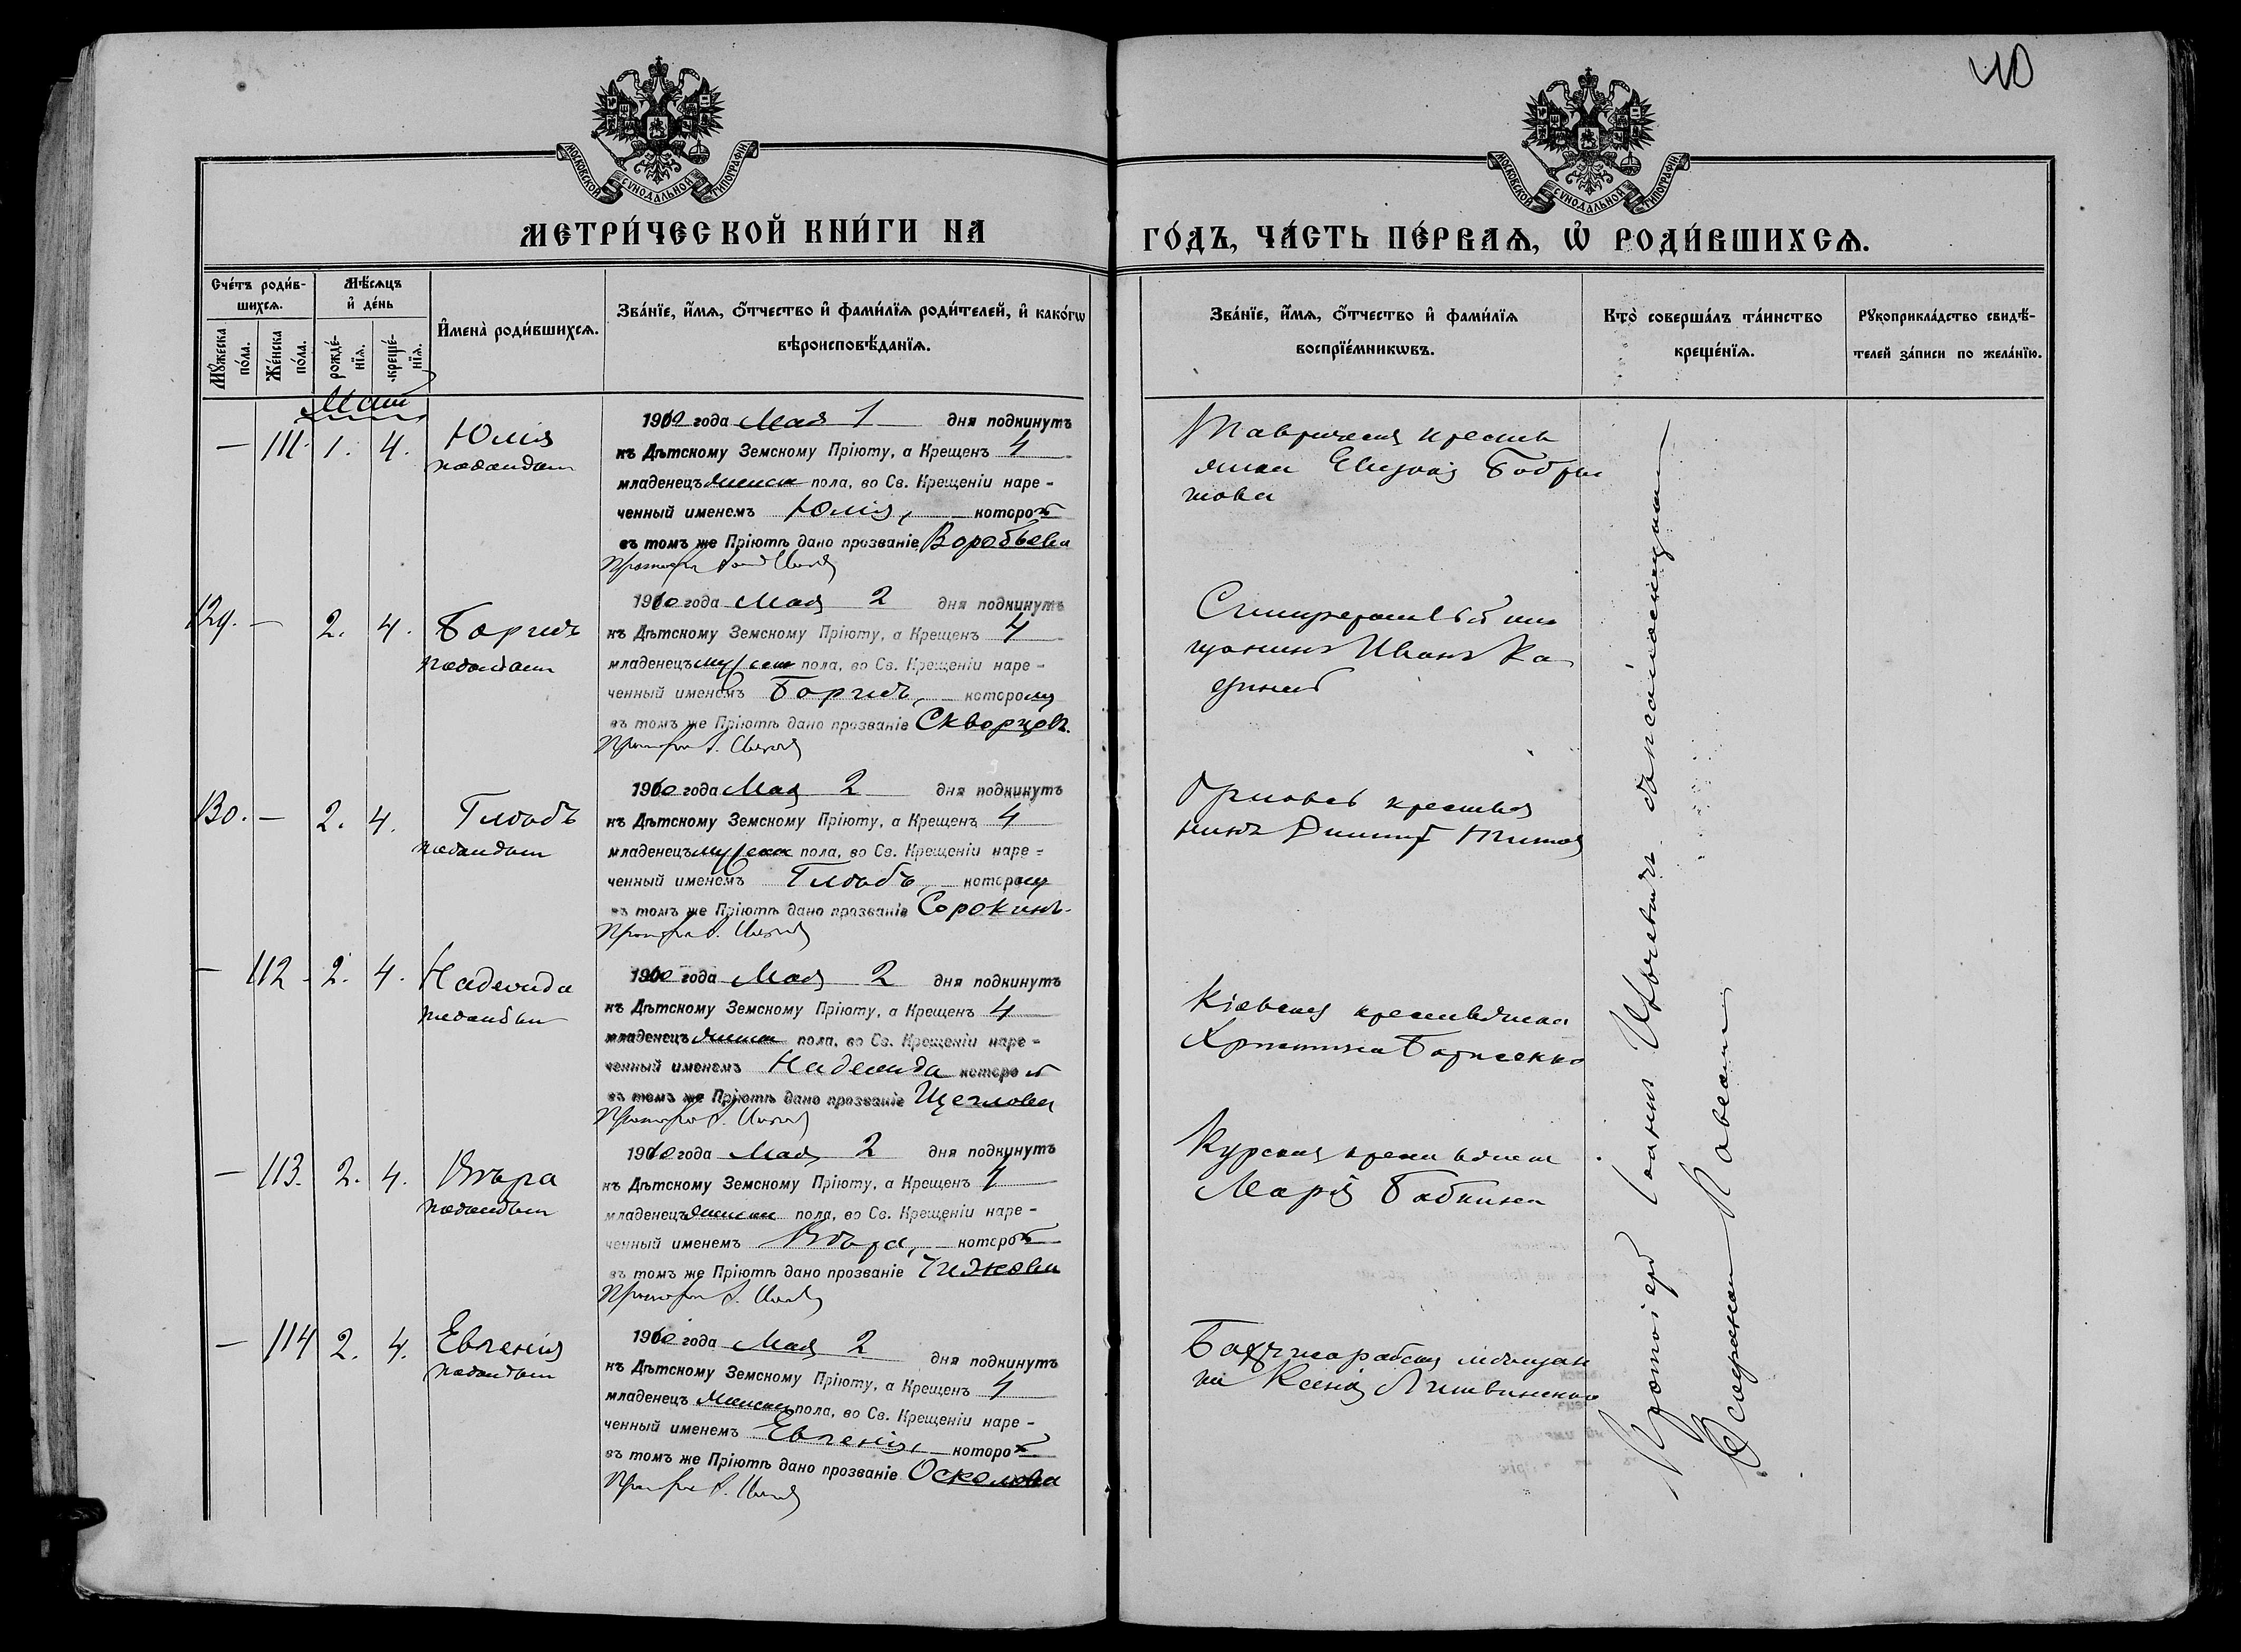 40
МОСКОВСКОЙ СѴНОДАЛЬНОЙ ТИПОГРАФІИ
МОСКОВСКОЙ СѴНОДАЛЬНОЙ ТИПОГРАФІИ
МЕТРИ́ЧЕСКОЙ КНИ́ГИ НА
ГО́ДЪ, ЧА́СТЬ ПЕ́РВАѦ, Ѡ РОДИ́ВШИХСѦ.
Сче́тъ роди́в-
шихсѧ.
Мѣ́сѧцъ
и҆ де́нь
Мꙋ́жеска
по́ла.
Же́нска
по́ла.
рожде́-
нїѧ.
креще́-
нїѧ.
И҆мена̀ роди́вшихсѧ.
Зва́нїе, и҆́мѧ, ѻ҆́тчество и҆ фами́лїѧ роди́телей, и҆ како́гѡ
вѣроисповѣ́данїѧ.
Зва́нїе, и҆́мѧ, ѻ҆́тчество и҆ фами́лїѧ
воспрїе́мникѡвъ.
Кто̀ соверша́лъ та́инство
креще́нїѧ.
Рꙋкоприкла́дство свидѣ́-
телей за́писи по жела́нїю.
Май
— 111. 1. 4. Юлія
1910 года Мая 1 дня подкинутъ
къ Дѣтскому Земскому Пріюту, а Крещенъ 4
младенецъ женск пола, во Св. Крещеніи наре-
ченный именемъ Юлія, которой
въ томъ же Пріютѣ дано прозваніе Воробьева
Таврическая крестья
янка Бобры
шова
129. — 2. 4. Борисъ
1910 года Мая 2 дня подкинутъ
къ Дѣтскому Земскому Пріюту, а Крещенъ 4
младенецъ мужеск пола, во Св. Крещеніи наре-
ченный именемъ Борисъ, которому
въ томъ же Пріютѣ дано прозваніе Скворцовъ.
Симферопольскій мѣ
щанинъ Иванъ Ка
130. — 2. 4. Глѣбъ
1910 года Мая 2 дня подкинутъ
къ Дѣтскому Земскому Пріюту, а Крещенъ 4
младенецъ мужеск пола, во Св. Крещеніи наре-
ченный именемъ Глѣбъ, которому
въ томъ же Пріютѣ дано прозваніе Сорокинъ.
крестья
нинъ Димитр Титов
— 112. 2. 4. Надежда
1910 года Мая 2 дня подкинутъ
къ Дѣтскому Земскому Пріюту, а Крещенъ 4
младенецъ женск пола, во Св. Крещеніи наре-
ченный именемъ Надежда которой
въ томъ же Пріютѣ дано прозваніе Щеглова
Кіевская крестьянка
Христина Борисенко
— 113. 2. 4. Вѣра
1910 года Мая 2 дня подкинутъ
къ Дѣтскому Земскому Пріюту, а Крещенъ 4
младенецъ женск пола, во Св. Крещеніи наре-
ченный именемъ Вѣра, которой
въ томъ же Пріютѣ дано прозваніе Чижова
Курская крестьянка
Марія Бабкина
— 114 2. 4. Евгенія
1910 года Мая 2 дня подкинутъ
къ Дѣтскому Земскому Пріюту, а Крещенъ 4
младенецъ женск пола, во Св. Крещеніи наре-
ченный именемъ Евгенія, которой
въ томъ же Пріютѣ дано прозваніе Осколова
Бахчисарайская мѣщан
ка Ксенія Литвиненко
Протоіерей Іоаннъ